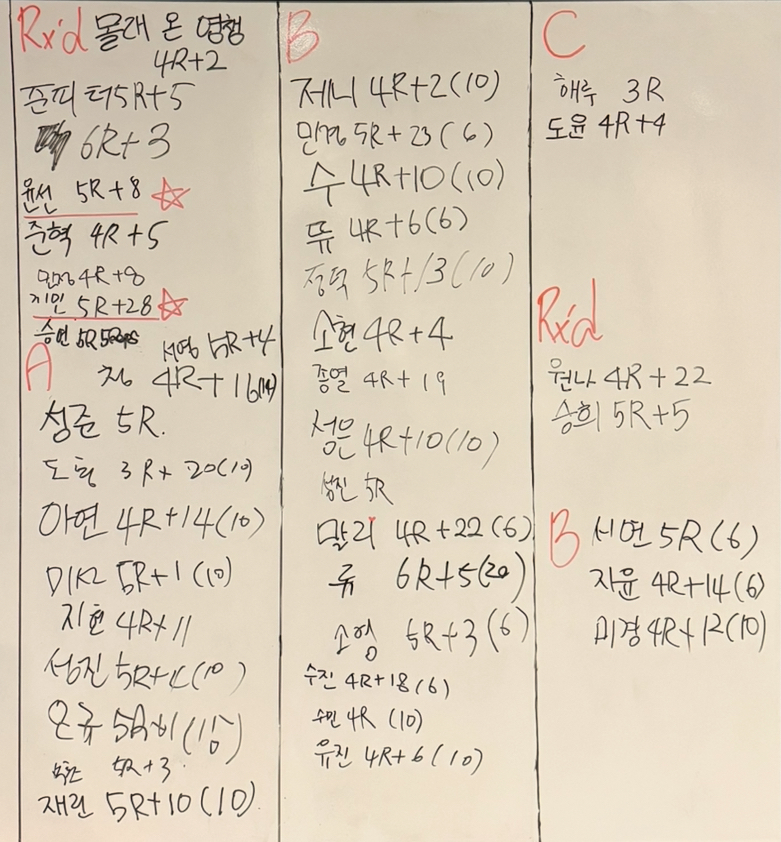 Rx'd 몰래 온 영행
4R+2
준피터 5R+5
6R+3
윤선 5R+8
준혁 4R+5
민정 4R+8
지민 5R+28
승연 5R 5Reps
서영 5R+4
A
청 4R+16(14)
성준 5R.
도형 3R+20(10)
아연 4R+14(10)
5R+1(10)
지현 4R+11
성진 5R+4(10)
은규
5R+3
재린 5R+10(10)
B
제니 4R+2(10)
민경 5R+23(6)
수 4R+10(10)
뜌 4R+6(6)
정덕 5R+13(10)
소현 4R+4
종열 4R+19
정은 4R+10(10)
성진 5R
말리 4R+22(6)
류 6R+5(20)
소영 5R+3(6)
수진 4R+18(6)
수민 4R (10)
유진 4R+6(10)
C
해루 3R
도윤 4R+4
Rx'd
원나 4R+22
승희 5R+5
B 서연 5R(6)
자윤 4R+14(6)
미경 4R+12(10)